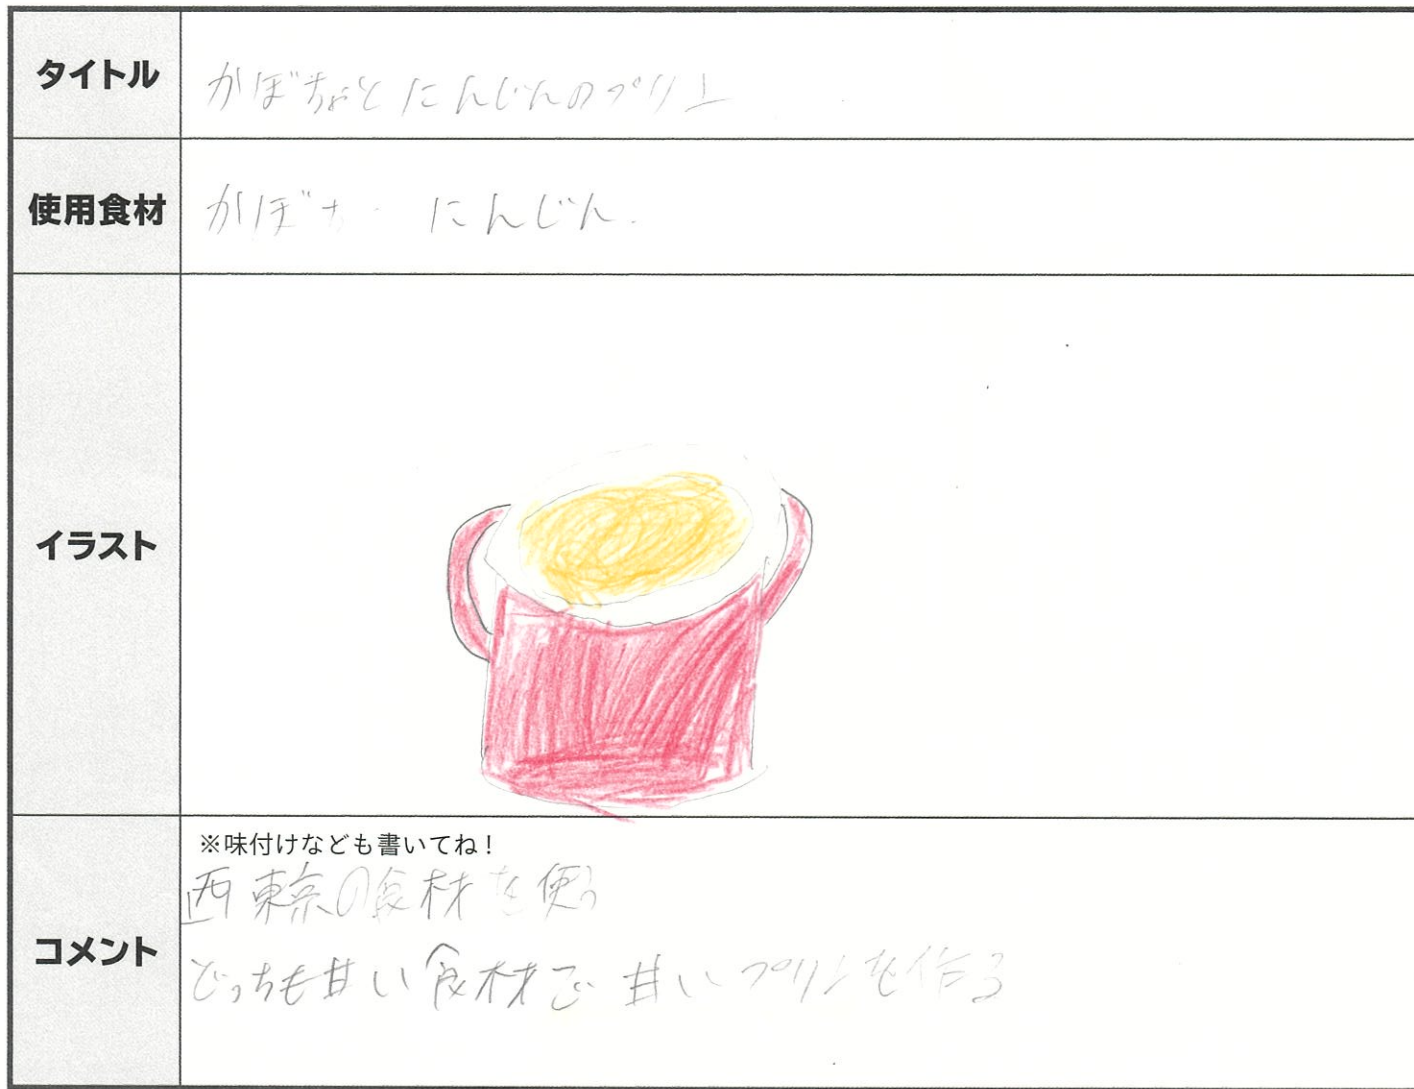 タイトル
かぼちゃとにんじんのプリン
使用食材
かぼち にんじん
イラスト
コメント
※味付けなども書いてね！
西東京の食材を使う
どっちも甘い食材で甘いプリンを作る